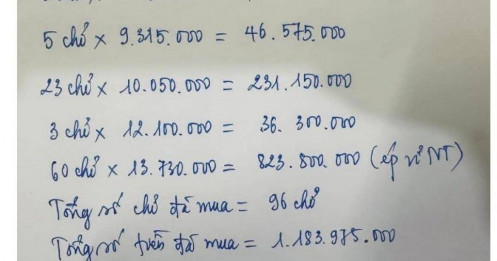 5 chỉ x 9.315.000 = 46.575.000
23 chỉ x 10.050.000 = 231.150.000
3 chỉ x 12.100.000 = 36.300.000
60 chỉ x 13.730.000 = 823.800.000 (ép vỉ NT)
Tổng số chỉ đã mua = 96 chỉ
Tổng số tiền đã mua = 1.183.975.000